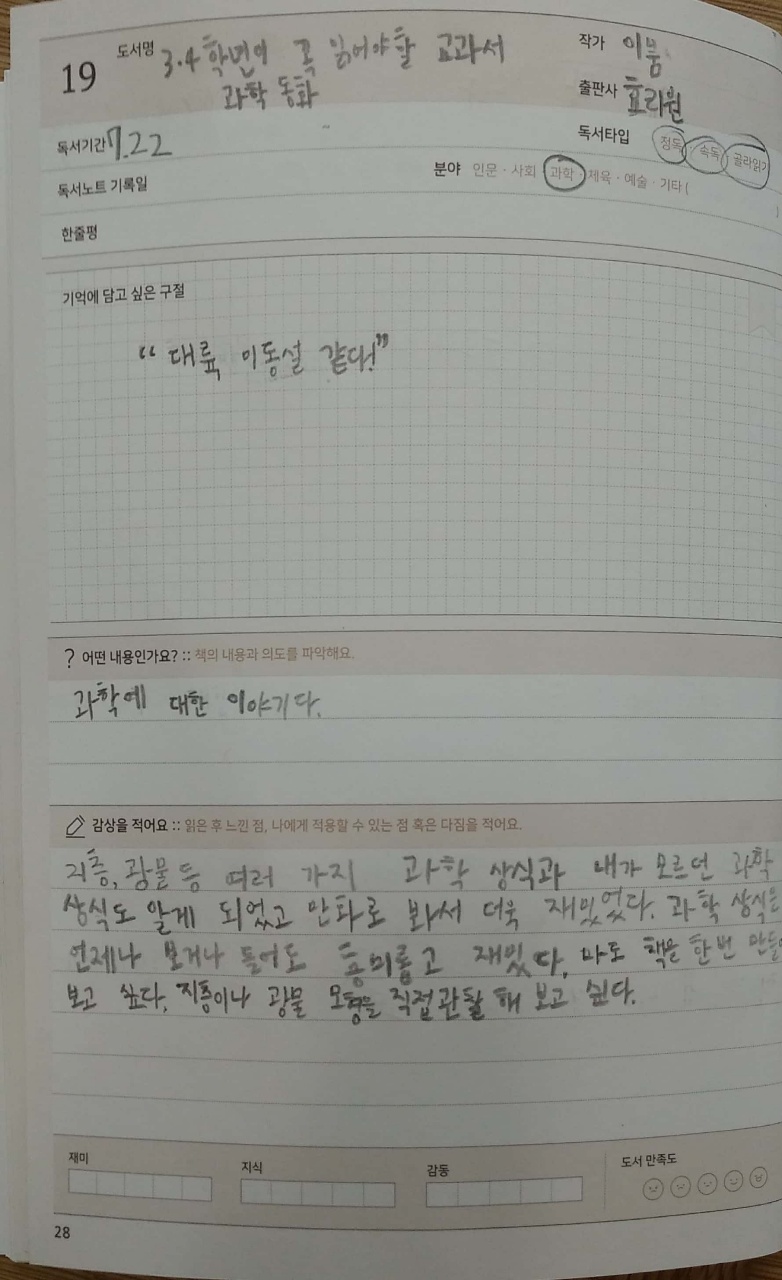 19 도서명 3.4 학년이 꼭 읽어야할 교과서 작가 이붐
과학 동화 출판사 효리원
독서기간 7.22 독서타입 정독 · 속독 · 골라읽기
독서노트 기록일 분야 인문 · 사회 · 과학 · 체육 · 예술 · 기타 (
한줄평
기억에 담고 싶은 구절
“대륙 이동설 같다!”
? 어떤 내용인가요? :: 책의 내용과 의도를 파악해요.
과학에 대한 이야기다.
감상을 적어요 :: 읽은 후 느낀 점, 나에게 적용할 수 있는 점 혹은 다짐을 적어요.
지층, 광물 등 여러 가지 과학 상식과 내가 모르던 과학
상식도 알게 되었고 만화로 봐서 더욱 재밌었다. 과학 상식은
언제나 보거나 들어도 흥미롭고 재밌다. 나도 책을 한번 만들어
보고 싶다. 지층이나 광물 모형을 직접 관찰 해 보고 싶다.
재미 지식 감동 도서 만족도
28